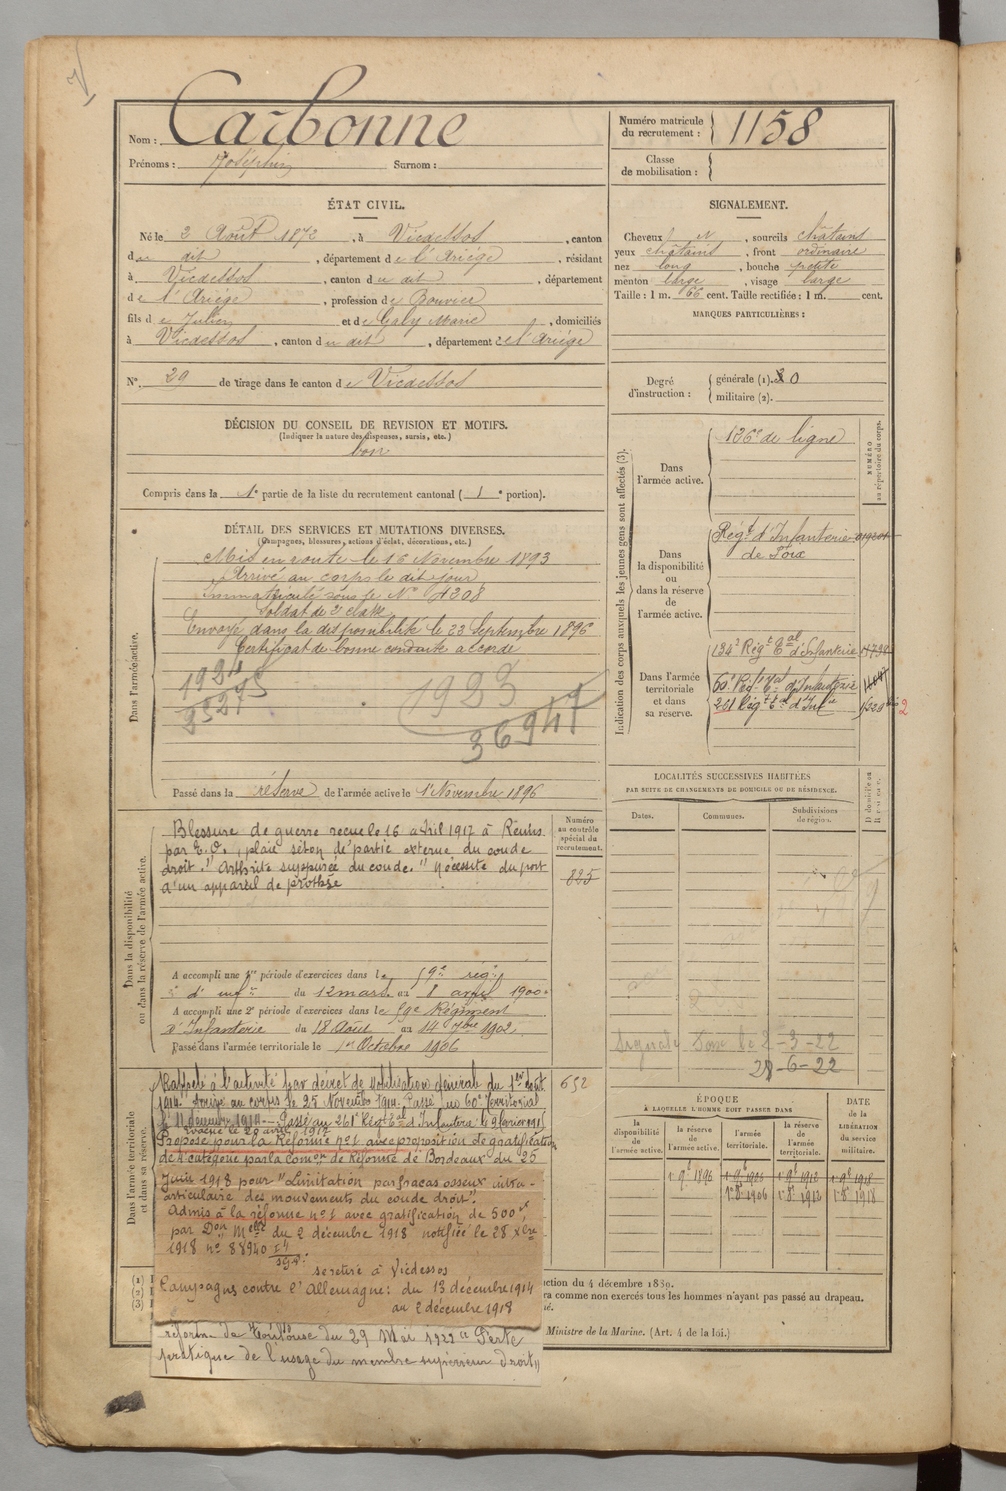 Nom : Carbonne
Prénoms : Joséphin Surnom :
Numéro matricule
du recrutement : 1158
Classe
de mobilisation :
ÉTAT CIVIL.
Né le 2 Août 1872, à Vicdessos, canton
du dit, département de l'Ariége, résidant
à Vicdessos, canton du dit, département
de l'Ariége, profession de Bouvier
fils de Julien et de Galy Marie, domiciliés
à Vicdessos, canton du dit, département de l'Ariége
N°. 29 de tirage dans le canton de Vicdessos
SIGNALEMENT.
Cheveux, sourcils châtains
yeux châtains, front ordinaire
nez long, bouche petite
menton large, visage large
Taille : 1 m. 66 cent. Taille rectifiée : 1 m. cent.
MARQUES PARTICULIÈRES :
Degré
d'instruction :
générale (1). 0
militaire (2).
DÉCISION DU CONSEIL DE REVISION ET MOTIFS.
(Indiquer la nature des dispenses, sursis, etc.)
bon
Compris dans la 1e partie de la liste du recrutement cantonal (1e portion).
DÉTAIL DES SERVICES ET MUTATIONS DIVERSES.
(Campagnes, blessures, actions d'éclat, décorations, etc.)
Dans l'armée active.
Mis en route le 16 Novembre 1893
Arrivé au corps le dit jour
Immatriculé sous le N° 4308
Soldat de 2e classe
Envoyé dans la disponibilité le 23 Septembre 1896
Certificat de bonne conduite accordé
1923
36947
Passé dans la réserve de l'armée active le 1er Novembre 1896
Indication des corps auxquels les jeunes gens sont affectés (3).
NUMÉRO
au répertoire du corps.
Dans
l'armée active.
126e de ligne
Dans
la disponibilité
ou
dans la réserve
de
l'armée active.
Régt d'Infanterie
de Foix
Dans l'armée
territoriale
et dans
sa réserve.
134e Régt Eal d'Infanterie
60e Régt Eal d'Infanterie
261 Régt Eal d'Infie
2
LOCALITÉS SUCCESSIVES HABITÉES
PAR SUITE DE CHANGEMENTS DE DOMICILE OU DE RÉSIDENCE.
Dates. Communes. Subdivisions
de région.
Dans la disponibilité
ou dans la réserve de l'armée active.
Numéro
au contrôle
spécial du
recrutement.
825
Blessure de guerre reçue le 16 avril 1917 à Reims
par E.O., plaie séton de partie externe du coude
droit. "Arthrite suppurée du coude." Nécessite du port
d'un appareil de prothèse
A accompli une 1re période d'exercices dans le 59e rég.
d'infie du 12 mars au 8 avril 1900
A accompli une 2e période d'exercices dans le 59e Régiment
d'Infanterie du 18 Août au 14 7bre 1902.
Passé dans l'armée territoriale le 1er Octobre 1906
2-3-22
28-6-22
Dans l'armée territoriale
et dans sa réserve.
652
Rappelé à l'activité par décret de mobilisation générale du 1er août
1914. Arrivé au corps le 25 Novembre 1914. Passé au 60e Territorial
le 11 décembre 1914. Passé au 261e Régt Eal d'Infanterie le 9 février 1916
Evacué le 20 avril 1917
Proposé pour la Réforme n°1 avec proposition de gratification
de 4 catégorie par la Comon de Réforme de Bordeaux du 25
Juin 1918 pour "Limitation par fracas osseux intra-
articulaire des mouvements du coude droit".
Admis à la réforme n°1 avec gratification de 500f
par Don Melle du 2 décembre 1918 notifiée le 28 Xbre
1918 n° 88940
se retire à Vicdessos
Campagne contre l'Allemagne : du 13 décembre 1914
au 2 décembre 1918
réforme de Toulouse du 29 Mai 1922 "Perte
pratique de l'usage du membre supérieur droit"
ÉPOQUE
À LAQUELLE L'HOMME DOIT PASSER DANS
DATE
de la
LIBÉRATION
du service
militaire.
la
disponibilité
de
l'armée active.
la réserve
de
l'armée active.
l'armée
territoriale.
la réserve
de
l'armée
territoriale.
1 9e 1896 1 9e 1906 1 9e 1912 1 9e 1918
1er 8e 1906 1 8e 1912 1 8e 1918
(1)
(2)
(3)
ction du 4 décembre 1889.
ra comme non exercés tous les hommes n'ayant pas passé au drapeau.
Ministre de la Marine. (Art. 4 de la loi.)